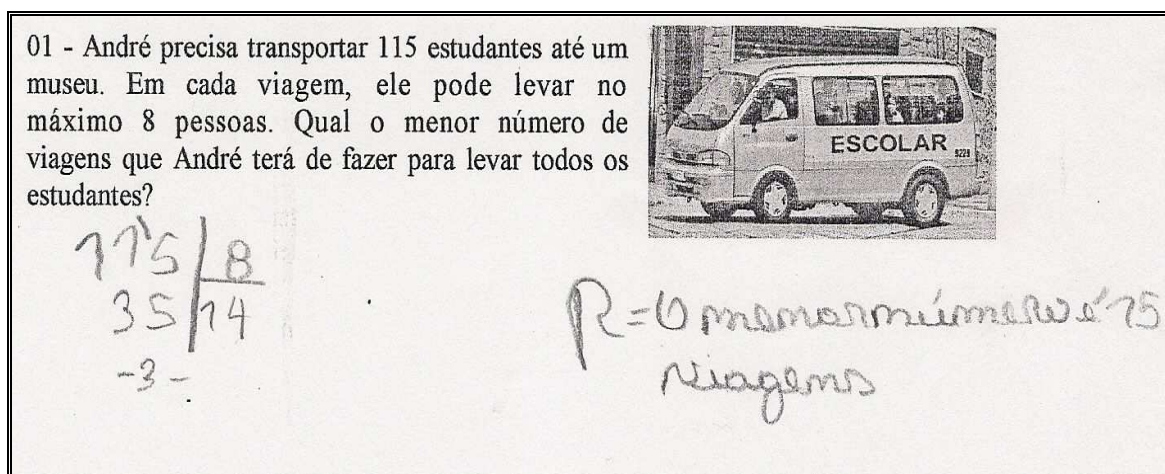 01 - André precisa transportar 115 estudantes até um
museu. Em cada viagem, ele pode levar no
máximo 8 pessoas. Qual o menor número de
viagens que André terá de fazer para levar todos os
estudantes?
ESCOLAR 9228
115 8
35 14
-3-
R=O menor número é 15
viagens